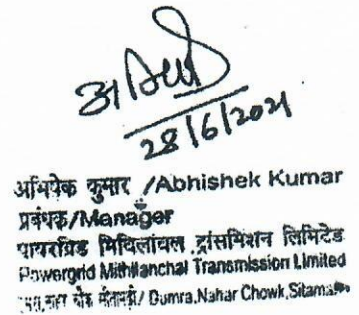 28/6/2021
अभिषेक कुमार /Abhishek Kumar
प्रबंधक/Manager
पावरग्रिड मिथिलांचल ट्रांसमिशन लिमिटेड
Powergrid Mithilanchal Transmission Limited
Dumra,Nahar Chowk,Sitama